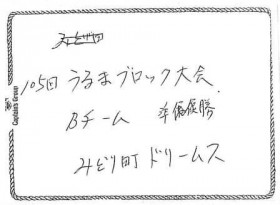 105回 うるまブロック大会
Bチーム 準優勝
みどり町 ドリームス
Captain's Group